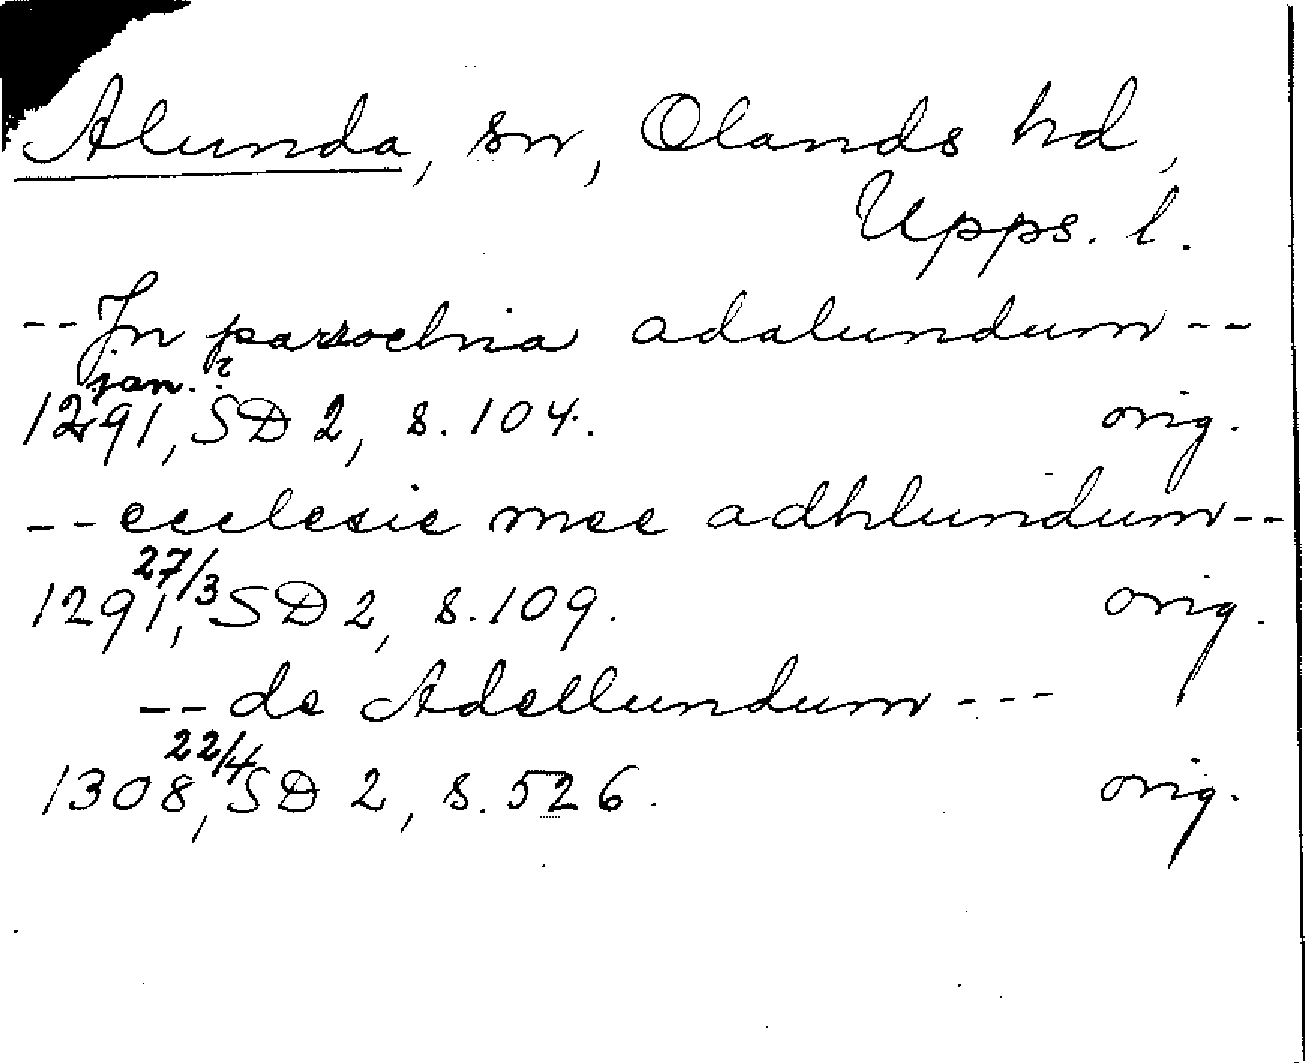 Alunda, sn, Olands hd,
Upps. l.
--In parrochia adalundum--
jan.?
1291, SD 2, s. 104. orig.
--ecclesie mee adhlundum--
27/3
1291, SD 2, s. 109. orig.
--de Adellundum---
22/4
1308, SD 2, s. 526. orig.